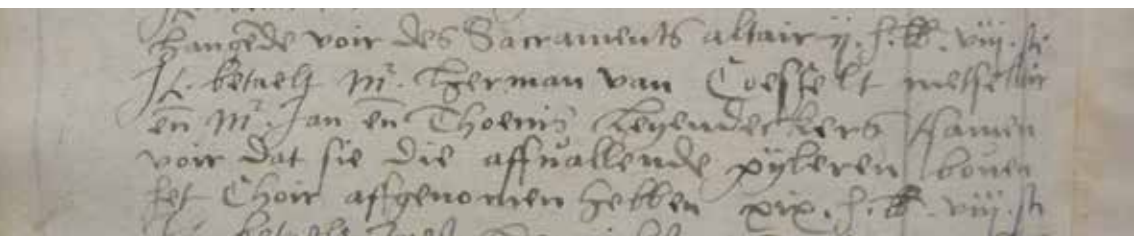 hangēde voir des Sacraments altair ij. s. lb. viij. st.
It. betaelt Mr. Herman van Coesfelt metseler
eñ Mr. Jan eñ Thoenis Leyendeckers tsamen
voir dat sie die affvallende pijleren boven
het Choir affgenomen hebben xix. s. lb. viij. st
It. betaelt